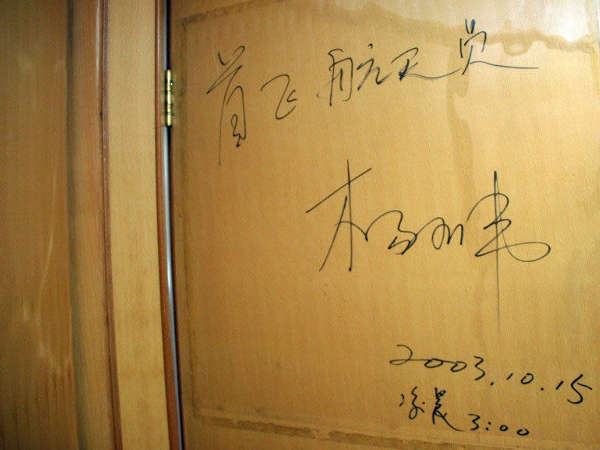 首飞航天员
杨利伟
2003.10.15
凌晨3:00